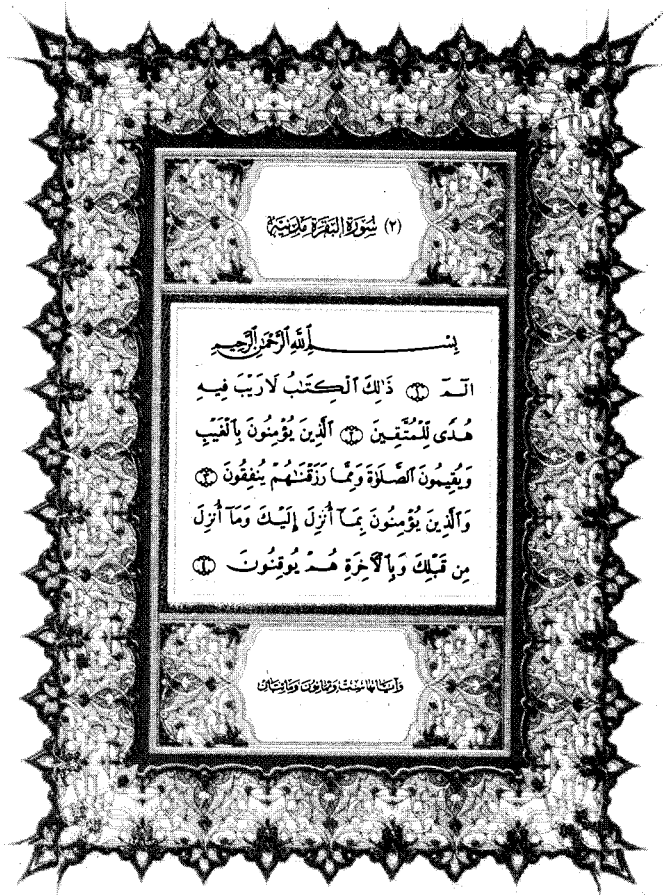 (٢) سُورَةُ الْبَقَرَةِ مَدَنِيَّة
بِسْمِ اللَّهِ الرَّحْمَٰنِ الرَّحِيمِ
الٓمٓ ۝١ ذَٰلِكَ الْكِتَٰبُ لَا رَيْبَ فِيهِ
هُدًى لِّلْمُتَّقِينَ ۝٢ الَّذِينَ يُؤْمِنُونَ بِالْغَيْبِ
وَيُقِيمُونَ الصَّلَوٰةَ وَمِمَّا رَزَقْنَٰهُمْ يُنفِقُونَ ۝٣
وَالَّذِينَ يُؤْمِنُونَ بِمَآ أُنزِلَ إِلَيْكَ وَمَآ أُنزِلَ
مِن قَبْلِكَ وَبِالْأَخِرَةِ هُمْ يُوقِنُونَ ۝٤
وَآيَاتُهَا سِتٌّ وَثَمَانُونَ وَمِائَتَانِ